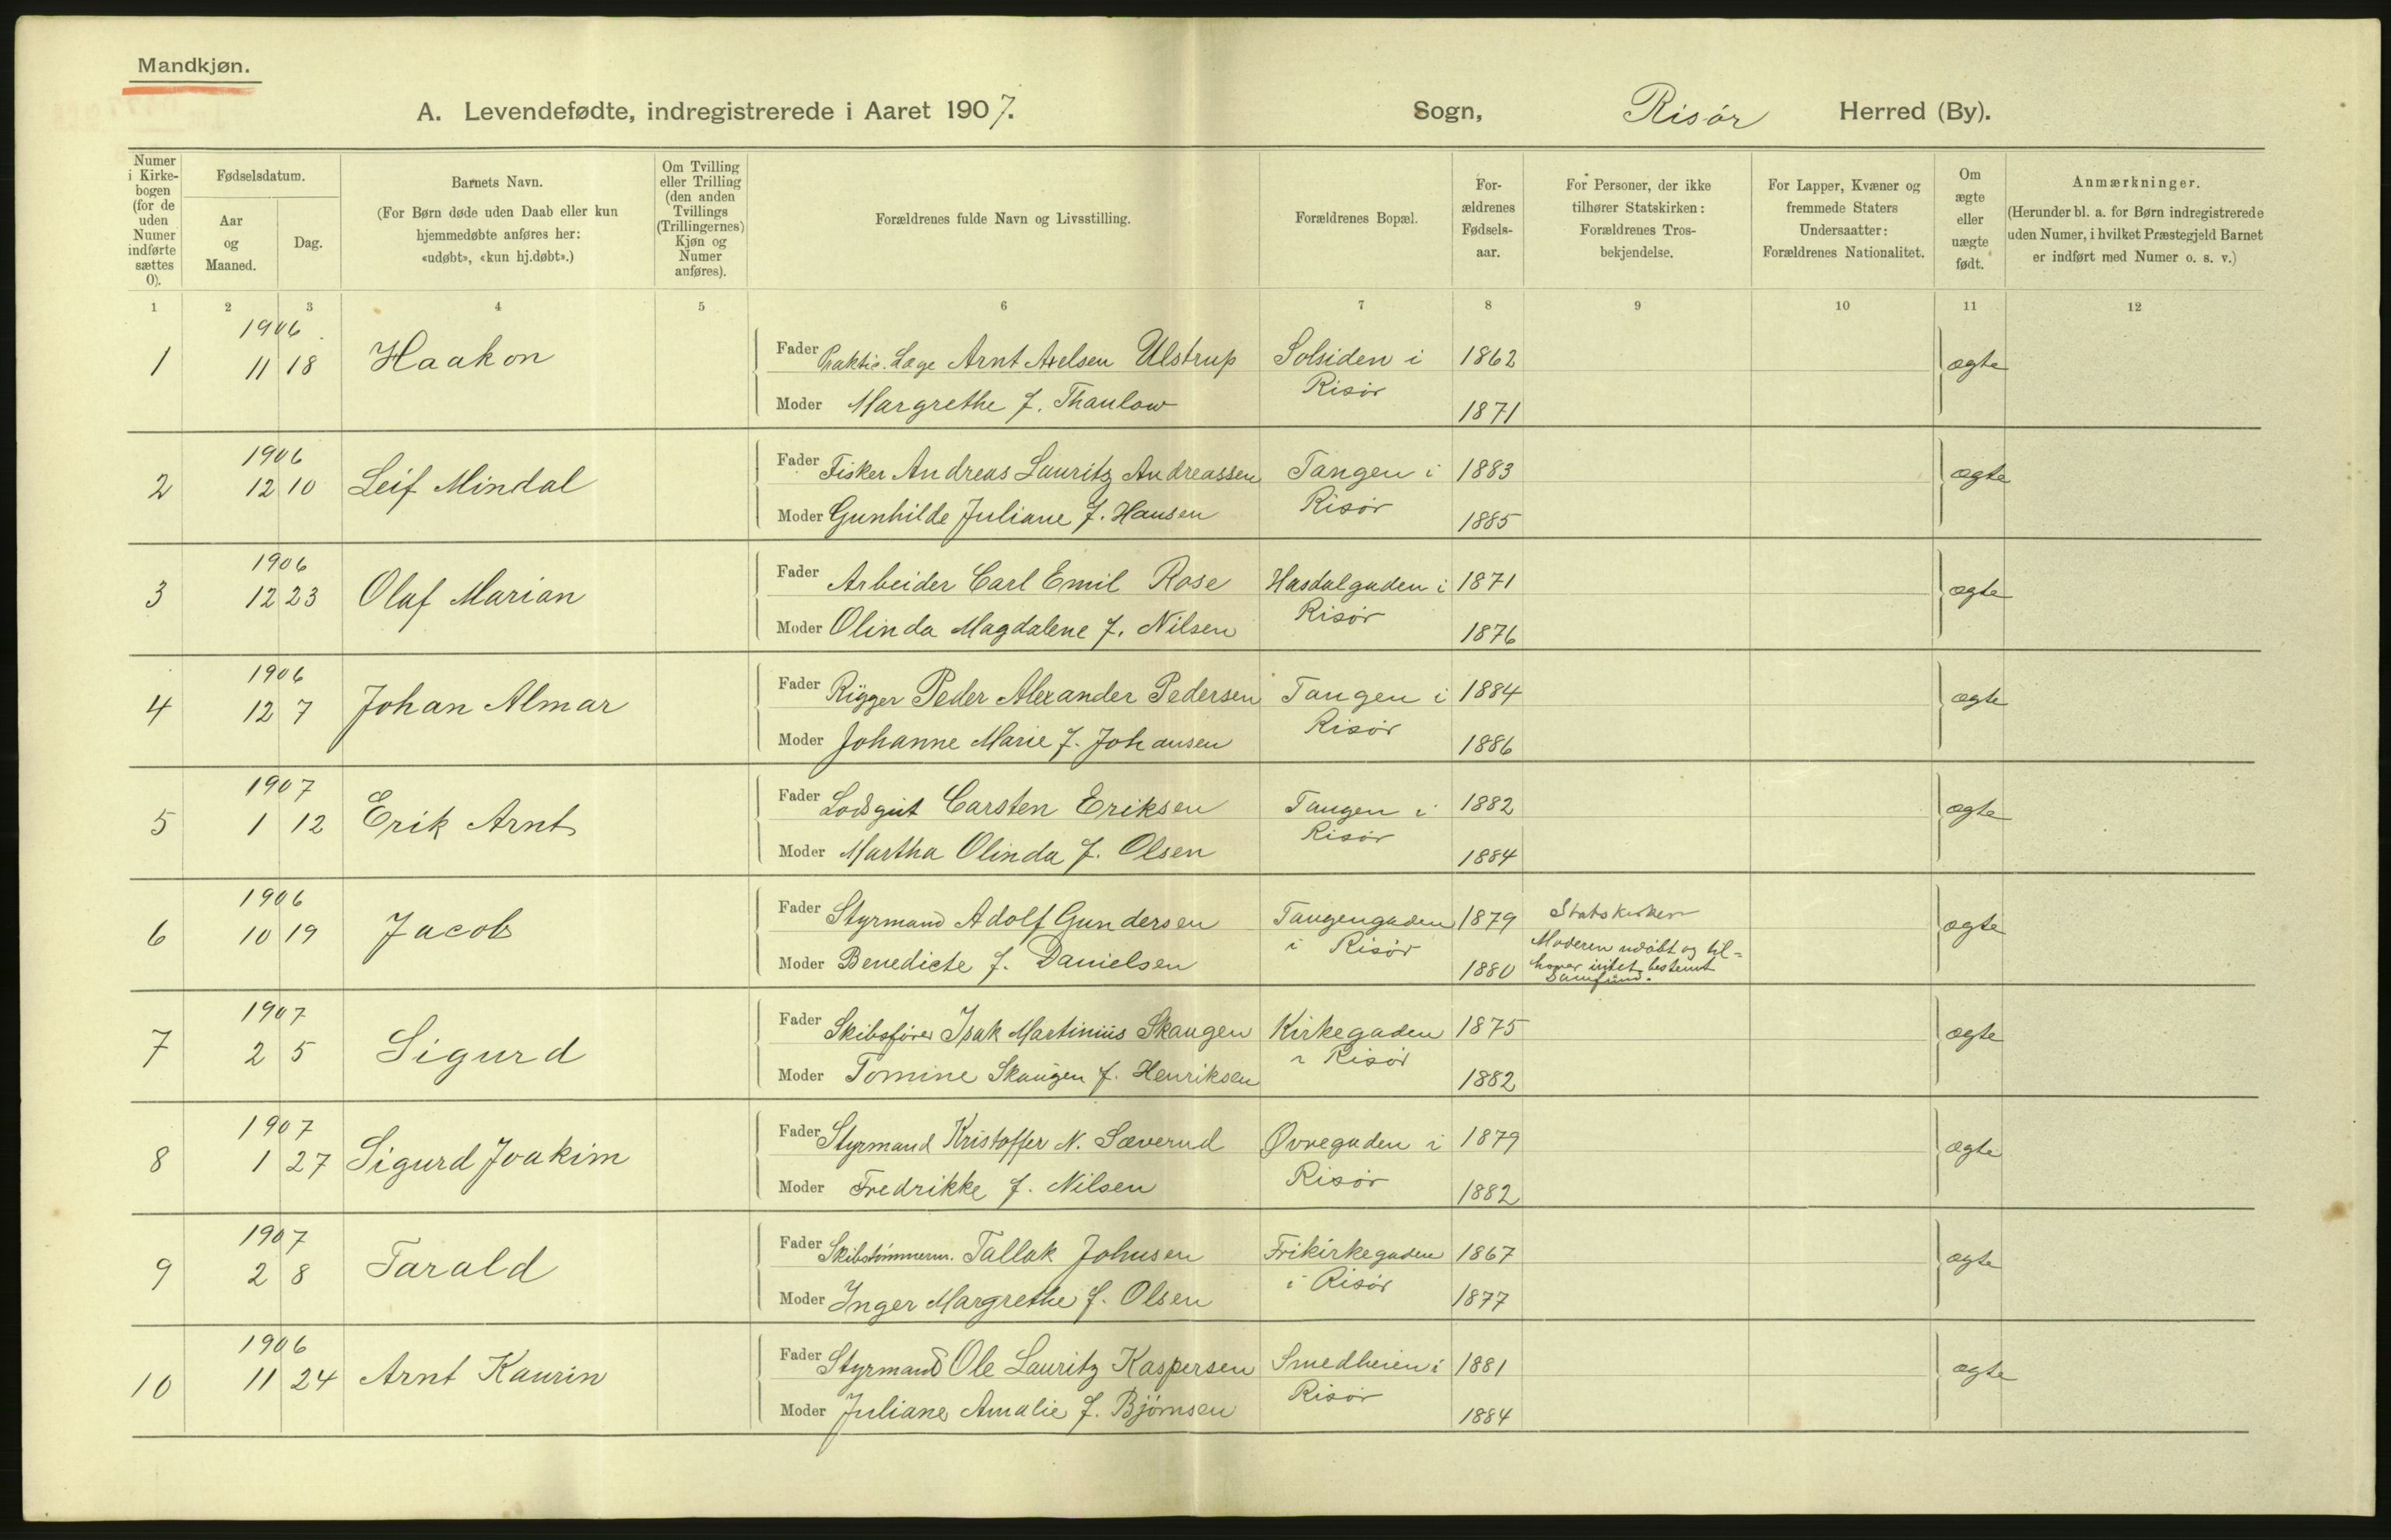 Mandkjøn.
A. Levendefødte, indregistrerede i Aaret 1907. Sogn, Risør Herred (By).
Numer i Kirkebogen (for de uden Numer indførte sættes 0).
Fødselsdatum.
Aar og Maaned.
Dag.
Barnets Navn.
(For Børn døde uden Daab eller kun hjemmedøbte anføres her: «udøbt», «kun hj.døbt».)
Om Tvilling eller Trilling (den anden Tvillings (Trillingernes) Kjøn og Numer anføres).
Forældrenes fulde Navn og Livsstilling.
Forældrenes Bopæl.
Forældrenes Fødselsaar.
For Personer, der ikke tilhører Statskirken: Forældrenes Trosbekjendelse.
For Lapper, Kvæner og fremmede Staters Undersaatter: Forældrenes Nationalitet.
Om ægte eller uægte født.
Anmærkninger.
(Herunder bl. a. for Børn indregistrerede uden Numer, i hvilket Præstegjeld Barnet er indført med Numer o. s. v.)
1 2 3 4 5 6 7 8 9 10 11 12
1906
1 11 18 Haakon Fader Praktis. Læge Arnt Axelsen Ulstrup Solsiden i 1862 ægte
Risør
Moder Margrethe f. Thaulow 1871
1906
2 12 10 Leif Mindal Fader Fisker Andreas Lauritz Andreassen Tangen i 1883 ægte
Risør
Moder Gunhilde Juliane f. Hansen 1885
1906
3 12 23 Olaf Marian Fader Arbeider Carl Emil Rose Hasdalgaden i 1871 ægte
Risør
Moder Olinda Magdalene f. Nilsen 1876
1906
4 12 7 Johan Almar Fader Rigger Peder Alexander Pedersen Tangen i 1884 ægte
Risør
Moder Johanne Marie f. Johansen 1886
1907
5 1 12 Erik Arnt Fader Lodsgut Carsten Eriksen Tangen i 1882 ægte
Risør
Moder Martha Olinda f. Olsen 1884
1906
6 10 19 Jacob Fader Styrmand Adolf Gundersen Tangengaden 1879 Statskirken ægte
i Risør
Moder Benedicte f. Danielsen 1880 Moderen udøbt og til=
hører intet bestemt
Samfund.
1907
7 2 5 Sigurd Fader Skibsfører Isak Martinius Skaugen Kirkegaden 1875 ægte
i Risør
Moder Tomine Skaugen f. Henriksen 1882
1907
8 1 27 Sigurd Joakim Fader Styrmand Kristoffer N. Sæverud Øvregaden i 1879 ægte
Risør
Moder Fredrikke f. Nilsen 1882
1907
9 2 8 Tarald Fader Skibstømmerm. Tallak Johnsen Frikirkegaden 1867 ægte
i Risør
Moder Inger Margrethe f. Olsen 1877
1906
10 11 24 Arnt Kaurin Fader Styrmand Ole Lauritz Kaspersen Smedheien i 1881 ægte
Risør
Moder Juliane Amalie f. Bjørnsen 1884